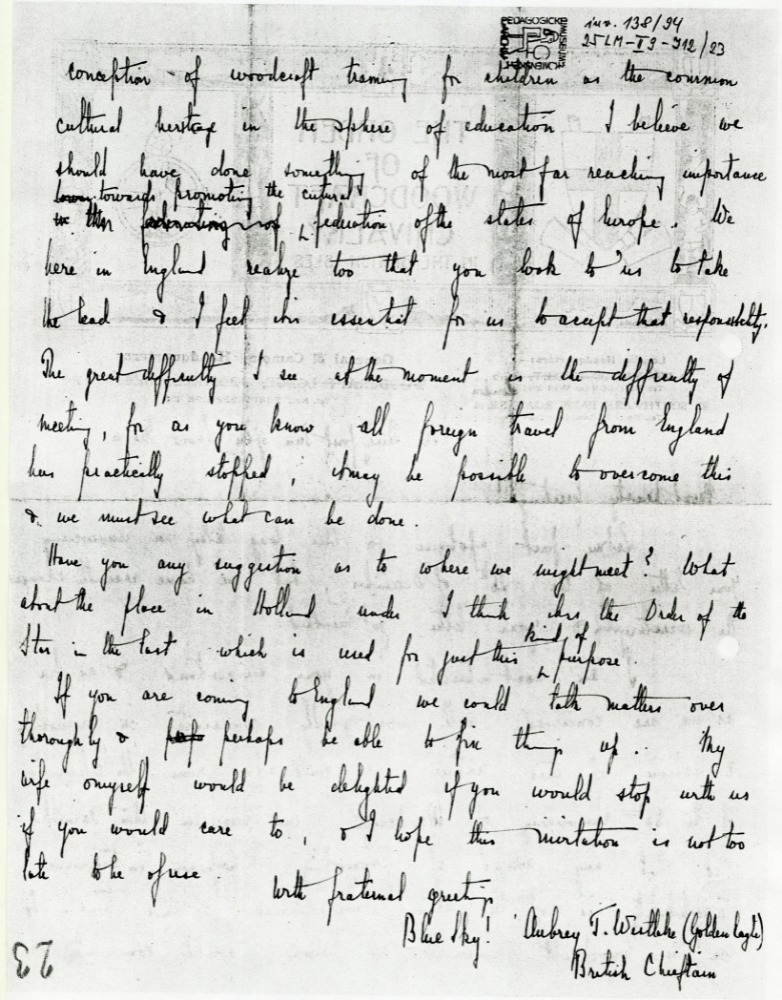 PEDAGOGICKÉ
MUZEUM
KOMENSKÉHO
inv. 138/94
25LM-T9-912/23
conception of woodcraft training for children as the common
cultural heritage in the sphere of education I believe we
should have done something of the most far reaching importance
towards promoting the cultural
federation of the states of Europe. We
here in England realize too that you look to us to take
the lead & I feel it is essential for us to accept that responsibility.
The great difficulty I see at the moment is the difficulty of
meeting, for as you know all foreign travel from England
has practically stopped; it may be possible to overcome this
& we must see what can be done.
Have you any suggestion as to where we might meet? What
about the place in Holland under I think it is the Order of the
Star in the East which is used for just this kind of purpose.
If you are coming to England we could talk matters over
thoroughly & perhaps be able to fix things up.. My
wife & myself would be delighted if you would stop with us
if you would care to, & I hope this invitation is not too
late to be of use.
With fraternal greetings
Blue Sky! Aubrey T. Westlake (Golden Eagle)
British Chieftain
23